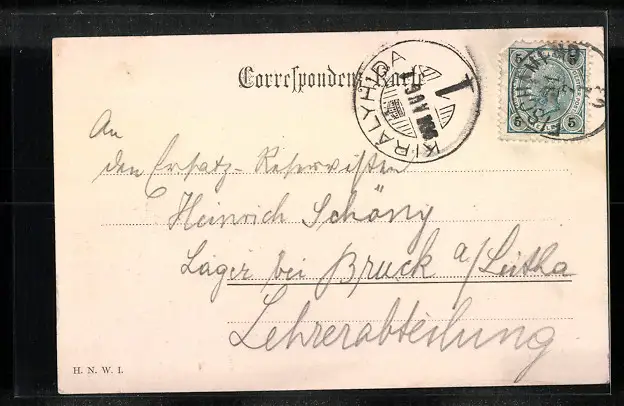 Correspondenz-Karte
KIRÁLYHIDA
5 5
An
den Ersatz-Reservisten
Heinrich Schöny
Lager bei Bruck a/Leitha
Lehrerabteilung
H. N. W. I.